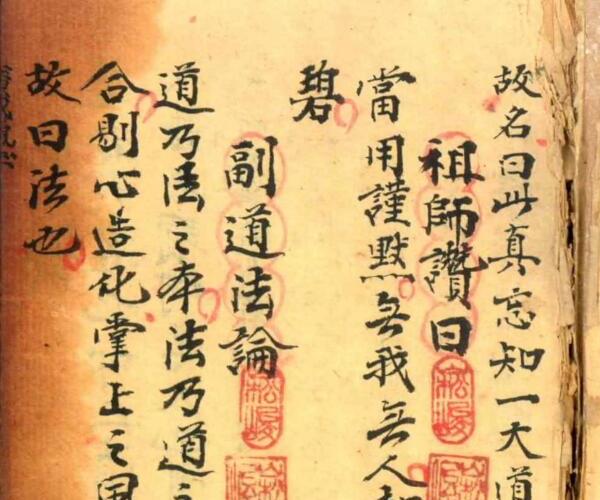 故名曰此真忘知一大道
祖師讚曰
當用謹默無我無人
碧
副道法論
道乃法之本法乃道之
合剔心造化掌上之
故曰法也